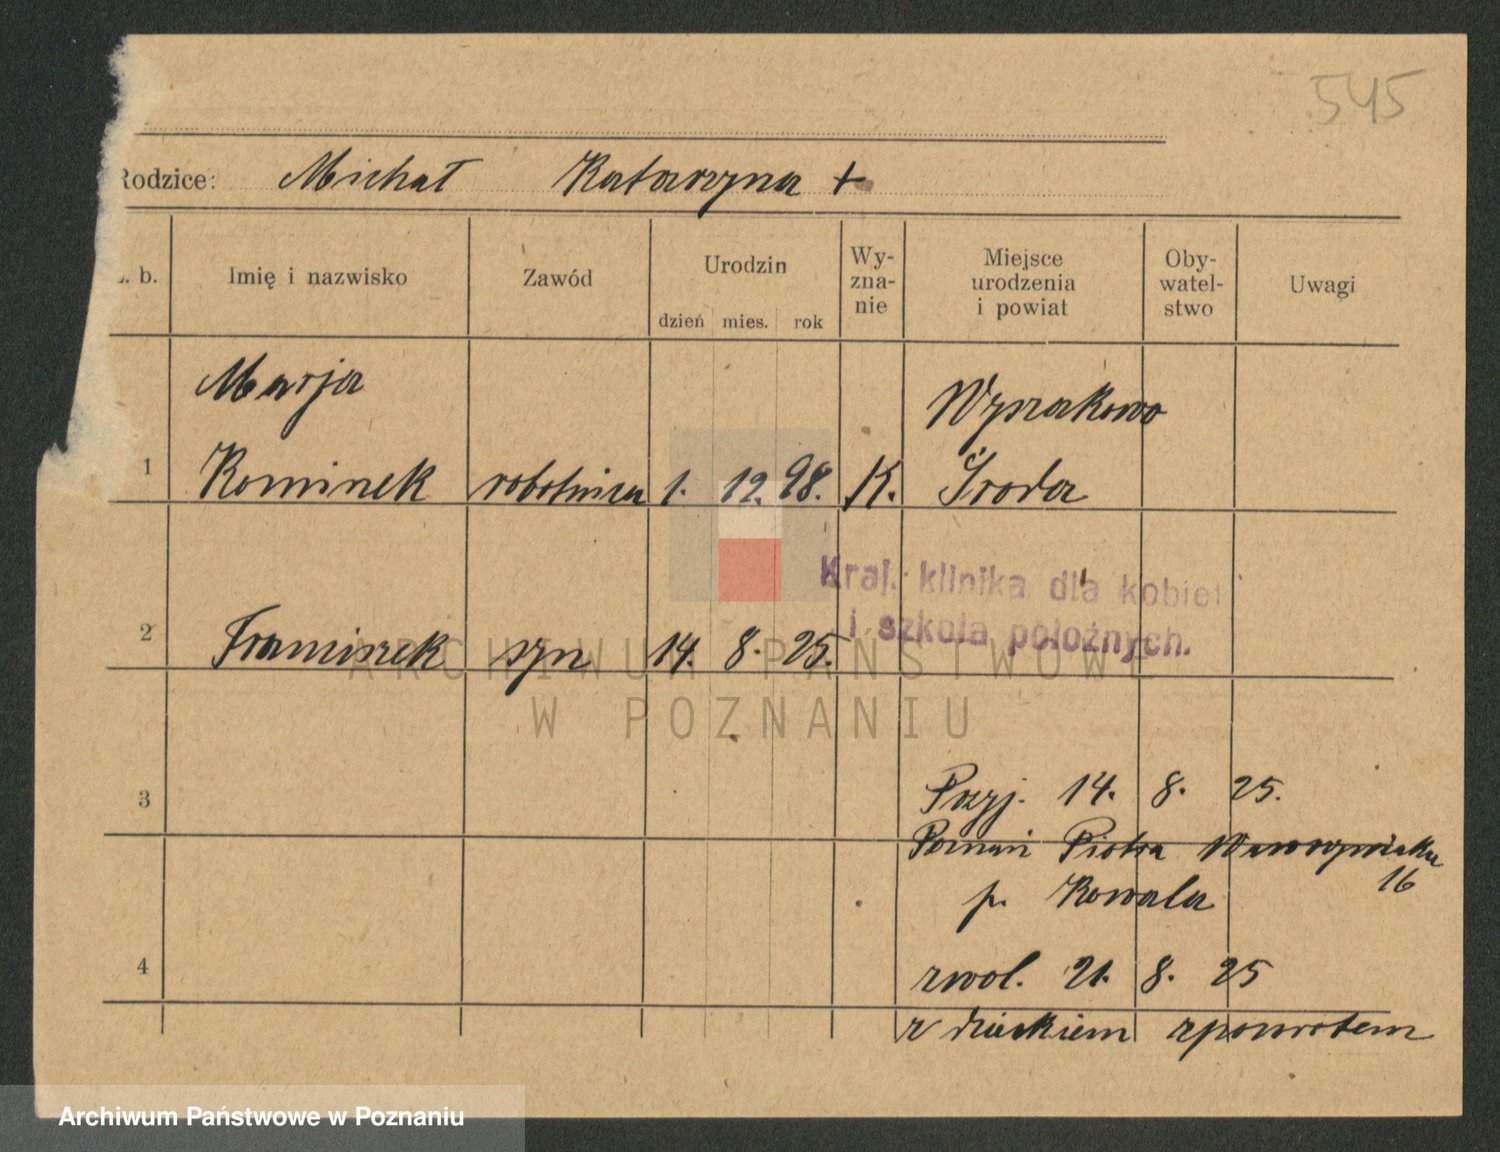 545
Rodzice: Michał Katarzyna +
L. b. Imię i nazwisko Zawód Urodzin dzień mies. rok Wy-zna-nie Miejsce urodzenia i powiat Oby-watel-stwo Uwagi
Marja Wyszakowo
1 Kominek robotnica 1. 12. 98. K. Środa
Kraj. klinika dla kobiet
i szkoła położnych.
2 Franciszek syn 14. 8. 25.
ARCHIWUM PAŃSTWOWE
W POZNANIU
3 Przyj. 14. 8. 25.
Poznań Piotra Wawrzyniaka
16
p. Kowala
4 zwol. 21. 8. 25
z dzieckiem zpowrotem
Archiwum Państwowe w Poznaniu